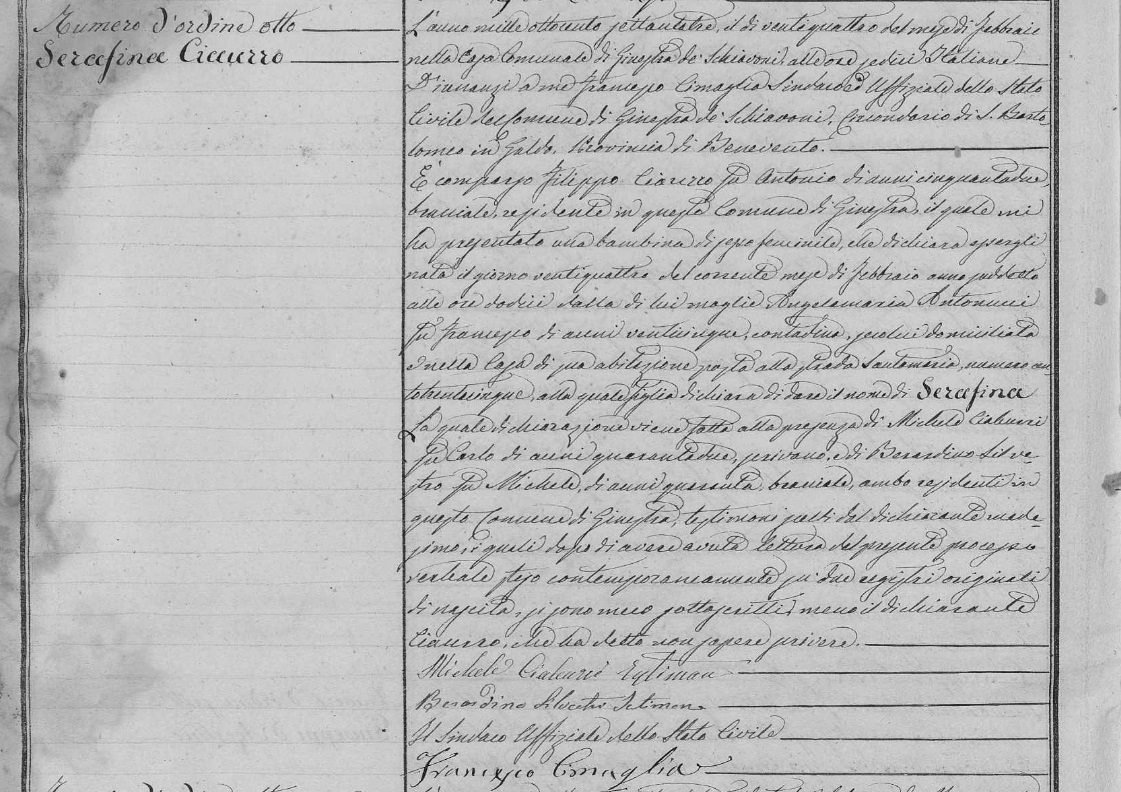 Numero d'ordine otto
Serafina Ciaurro
L'anno mille ottocento settantatre, il dì ventiquattro del mese di Febbraio
nella Casa Comunale di Ginestra de' Schiavoni, alle ore sedici Italiane
D'innanzi a me Francesco Cimaglia Sindaco ed Uffiziale dello Stato
Civile del Comune di Ginestra de' Schiavoni, Circondario di S. Barto
lomeo in Galdo, Provincia di Benevento.
È comparso Filippo Ciaurro fu Antonio di anni cinquantadue,
bracciale, residente in questo Comune di Ginestra, il quale mi
ha presentato una bambina di sesso feminile, che dichiara essergli
nata il giorno ventiquattro del corrente mese di Febbraio anno suddetto
alle ore dodici dalla di lui moglie Angelamaria Antonucci
fu Francesco di anni venticinque, contadina, secolui domiciliata
e nella Casa di sua abitazione posta alla strada Santomaria, numero cen
totrentacinque, alla quale figlia dichiara di dare il nome di Serafina
La quale dichiarazione viene fatta alla presenza di Michele Ciaburri
fu Carlo di anni quarantadue, scrivano, e di Berardino Silve-
stro fu Michele, di anni quaranta, bracciale, ambo residenti in
questo Comune di Ginestra, testimoni scelti dal dichiarante mede-
simo, i quali dopo di avere avuta lettura del presente processo
verbale steso contemporaneamente su' due registri originali
di nascita, si sono meco sottoscritti, meno il dichiarante
Ciaurro, che ha detto non sapere scrivere.
Michele Ciaburri
Berardino Silvestri
Il Sindaco Uffiziale dello Stato Civile
Francesco Cimaglia